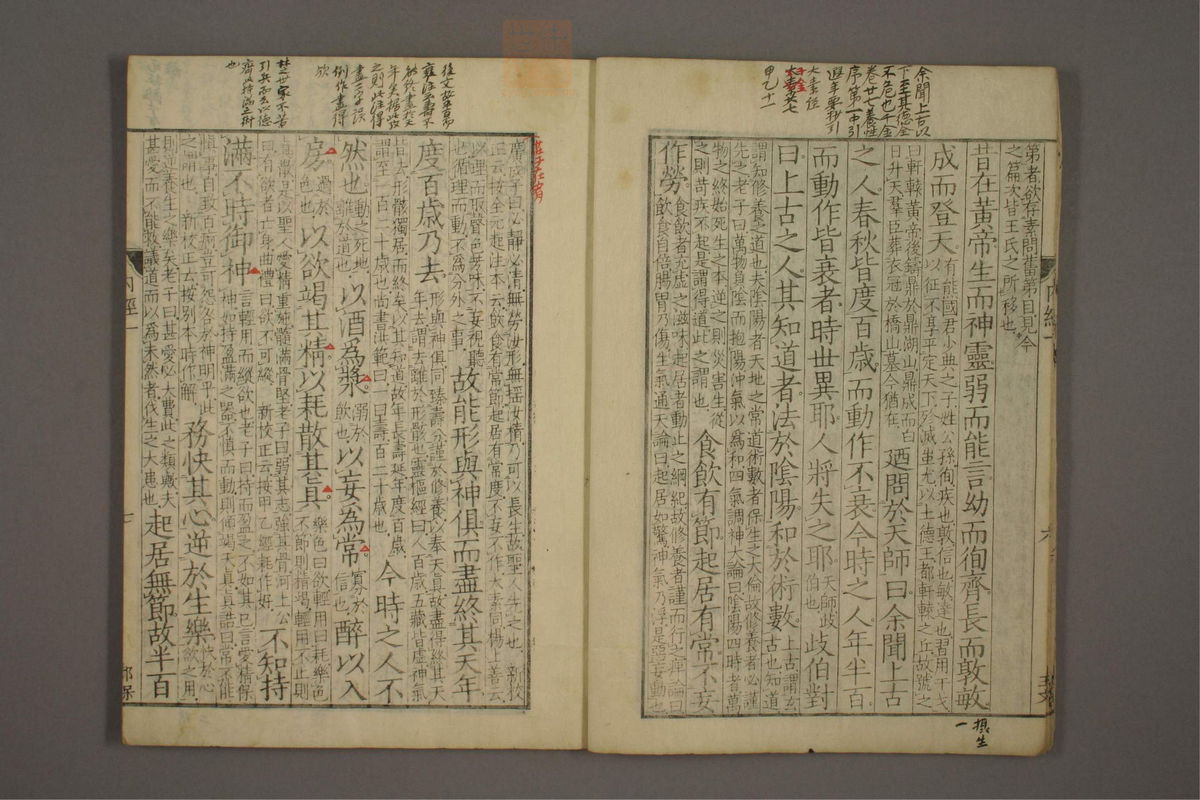 第者欲存素問舊第目見今
之篇次皆王氏之所移也
昔在黃帝生而神靈弱而能言幼而徇齊長而敦敏
成而登天有熊國君少典之子姓公孫徇疾也敦信也敏達也習用干戈
以征不享平定天下殄滅蚩尤以土德王都軒轅之丘故號之
曰軒轅黃帝後鑄鼎於鼎湖山鼎成而白
日升天羣臣葬衣冠於橋山墓今猶在
廼問於天師曰余聞上古
之人春秋皆度百歲而動作不衰今時之人年半百
而動作皆衰者時世異耶人將失之耶天師岐
伯也
岐伯對
曰上古之人其知道者法於陰陽和於術數上古謂玄
古也知道
謂知修養之道也夫陰陽者天地之常道術數者保生之大倫故修養者必謹
先之老子曰萬物負陰而抱陽沖氣以為和四氣調神大論曰陰陽四時者萬
物之終始死生之本逆之則災害生從
之則苛疾不起是謂得道此之謂也
食飲有節起居有常不妄
作勞食飲者充虛之滋味起居者動止之綱紀故修養者謹而行之痺論曰
飲食自倍腸胃乃傷生氣通天論曰起居如驚神氣乃浮是惡妄動也
廣成子曰必靜必清無勞汝形無搖汝精乃可以長生故聖人先之也新校
正云按全元起注本云飲食有常節起居有常度不妄不作太素同楊上善云
以理而取聲色芳味不妄視聽
也循理而動不為分外之事
故能形與神俱而盡終其天年
度百歲乃去形與神俱同臻壽分謹於修養以奉天真故盡得終其天
年去謂去離於形骸也靈樞經曰人百歲五藏皆虛神氣
皆去形骸獨居而終矣以其知道故年長壽延年度百歲
謂至一百二十歲也尚書洪範曰一曰壽百二十歲也
今時之人不
然也動之死地
離於道也
以酒為漿溺於
飲也
以妄為常寡於
信也
醉以入
房過於
色也
以欲竭其精以耗散其真樂色曰欲輕用曰耗樂色
不節則精竭輕用不止則
真散是以聖人愛精重施髓滿骨堅老子曰弱其志強其骨河上公
曰有欲者亡身曲禮曰欲不可縱
新校正云按甲乙經耗作好
不知持
滿不時御神言輕用而縱欲也老子曰持而盈之不如其已言愛精保
神如持盈滿之器不慎而動則傾竭天真真誥曰常不能
慎事自致百痾豈可怨咎於神明乎此
之謂也新校正云按別本時作解
務快其心逆於生樂快於心
欲之用
則逆養生之樂矣老子曰甚愛必大費此之類歟夫
甚愛而不能救議道而以為未然者伐生之大患也
起居無節故半百
內經一
七
余聞上古以
下至其德全
不危也千金
卷廿七養性
序第一中引
甲乙十一
攝生
一